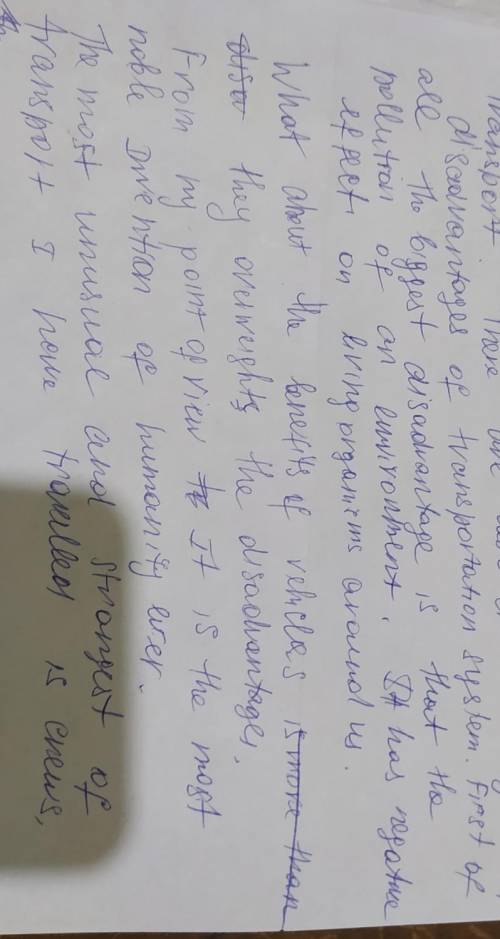 transport. There are
disadvantages of transportation system. First of
all the biggest disadvantage is that the
pollution of an environment. It has negative
effect on living organisms around us.
What about the benefits of vehicles is more than
they overweights the disadvantages.
From my point of view It is the most
noble Invention of humanity ever.
The most unusual and strangest of
transport I have travelled is